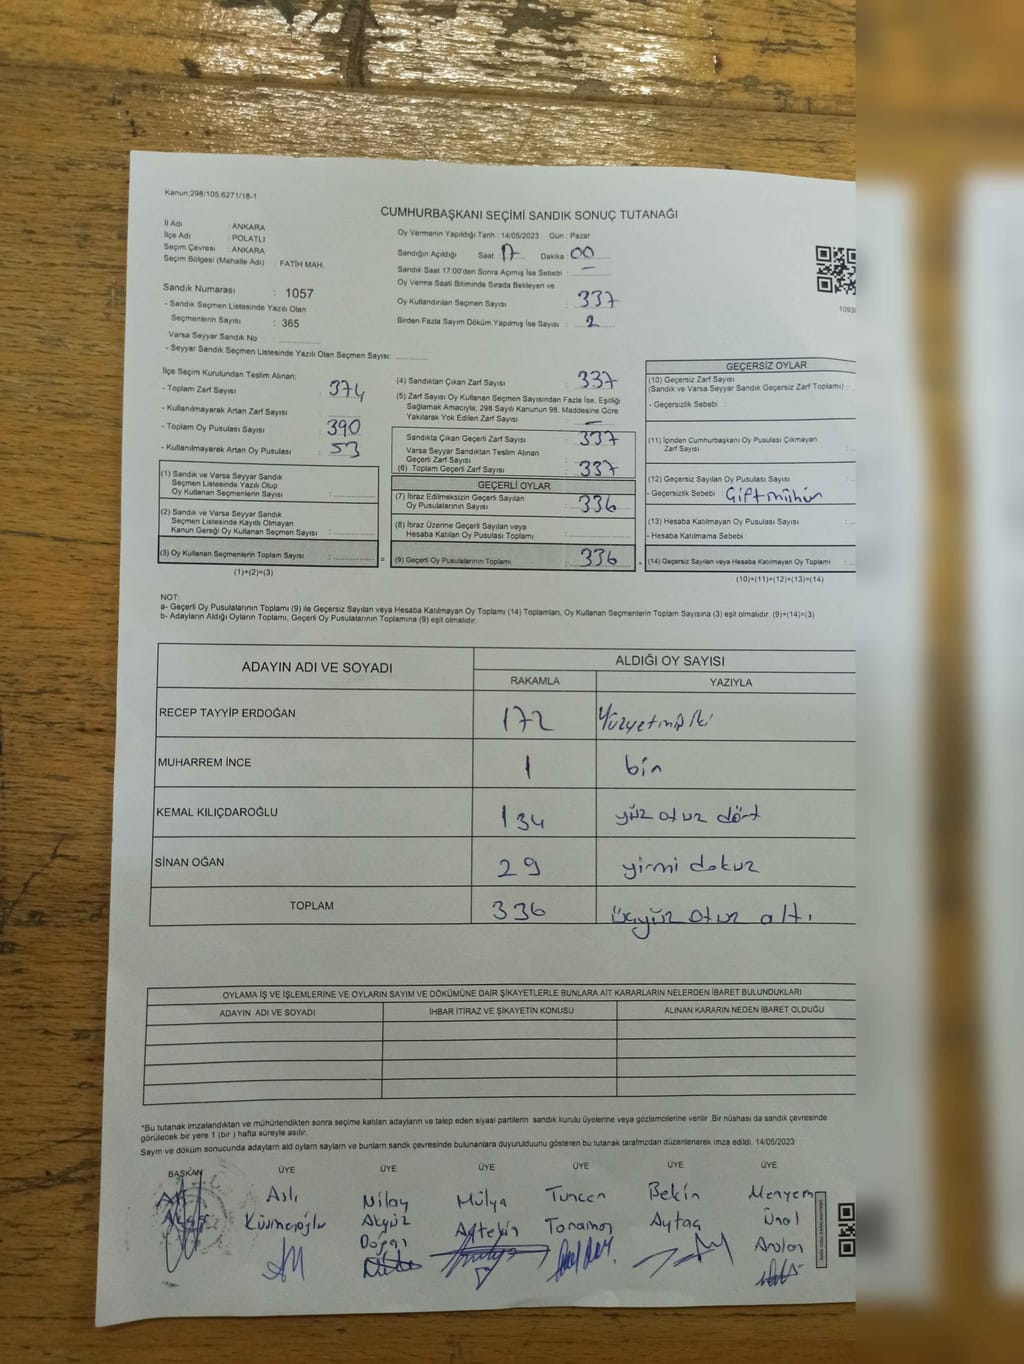 Kanun;298/105;6271/18-1
CUMHURBAŞKANI SEÇİMİ SANDIK SONUÇ TUTANAĞI
İl Adı : ANKARA
İlçe Adı : POLATLI
Seçim Çevresi : ANKARA
Seçim Bölgesi (Mahalle Adı) : FATİH MAH.
Sandık Numarası : 1057
- Sandık Seçmen Listesinde Yazılı Olan
Seçmenlerin Sayısı : 365
Varsa Seyyar Sandık No :
- Seyyar Sandık Seçmen Listesinde Yazılı Olan Seçmen Sayısı:
Oy Vermenin Yapıldığı Tarih : 14/05/2023 Gün : Pazar
Sandığın Açıldığı Saat : 17 Dakika : 00
Sandık Saat 17:00'den Sonra Açımış İse Sebebi : —
Oy Verme Saati Bitiminde Sırada Bekleyen ve
Oy Kullandırılan Seçmen Sayısı : 337
Birden Fazla Sayım Döküm Yapılmış İse Sayısı : 2
1093
İlçe Seçim Kurulundan Teslim Alınan;
- Toplam Zarf Sayısı : 374
- Kullanılmayarak Artan Zarf Sayısı :
- Toplam Oy Pusulası Sayısı : 390
- Kullanılmayarak Artan Oy Pusulası : 53
(1) Sandık ve Varsa Seyyar Sandık
Seçmen Listesinde Yazılı Olup
Oy Kullanan Seçmenlerin Sayısı :
(2) Sandık ve Varsa Seyyar Sandık
Seçmen Listesinde Kayıtlı Olmayan
Kanun Gereği Oy Kullanan Seçmen Sayısı :
(3) Oy Kullanan Seçmenlerin Toplam Sayısı : =
(1)+(2)=(3)
(4) Sandıktan Çıkan Zarf Sayısı : 337
(5) Zarf Sayısı Oy Kullanan Seçmen Sayısından Fazla İse, Eşitliği
Sağlamak Amacıyla; 298 Sayılı Kanunun 98. Maddesine Göre
Yakılarak Yok Edilen Zarf Sayısı : —
Sandıkta Çıkan Geçerli Zarf Sayısı : 337
Varsa Seyyar Sandıktan Teslim Alınan
Geçerli Zarf Sayısı :
(6) Toplam Geçerli Zarf Sayısı : 337
GEÇERLİ OYLAR
(7) İtiraz Edilmeksizin Geçerli Sayılan
Oy Pusulalarının Sayısı : 336
(8) İtiraz Üzerine Geçerli Sayılan veya
Hesaba Katılan Oy Pusulası Toplamı :
(9) Geçerli Oy Pusulalarının Toplamı : 336 +
GEÇERSİZ OYLAR
(10) Geçersiz Zarf Sayısı
(Sandık ve Varsa Seyyar Sandık Geçersiz Zarf Toplamı) :
- Geçersizlik Sebebi :
(11) İçinden Cumhurbaşkanı Oy Pusulası Çıkmayan
Zarf Sayısı :
(12) Geçersiz Sayılan Oy Pusulası Sayısı :
- Geçersizlik Sebebi : Çift mühür
(13) Hesaba Katılmayan Oy Pusulası Sayısı :
- Hesaba Katılmama Sebebi :
(14) Geçersiz Sayılan veya Hesaba Katılmayan Oy Toplamı :
(10)+(11)+(12)+(13)=(14)
NOT:
a- Geçerli Oy Pusulalarının Toplamı (9) ile Geçersiz Sayılan veya Hesaba Katılmayan Oy Toplamı (14) Toplamları, Oy Kullanan Seçmenlerin Toplam Sayısına (3) eşit olmalıdır. (9)+(14)=(3)
b- Adayların Aldığı Oyların Toplamı, Geçerli Oy Pusulalarının Toplamına (9) eşit olmalıdır.
ADAYIN ADI VE SOYADI ALDIĞI OY SAYISI
RAKAMLA YAZIYLA
RECEP TAYYİP ERDOĞAN 172 Yüzyetmiş iki
MUHARREM İNCE 1 bir
KEMAL KILIÇDAROĞLU 134 yüz otuz dört
SİNAN OĞAN 29 yirmi dokuz
TOPLAM 336 üçyüz otuz altı
OYLAMA İŞ VE İŞLEMLERİNE VE OYLARIN SAYIM VE DÖKÜMÜNE DAİR ŞİKAYETLERLE BUNLARA AİT KARARLARIN NELERDEN İBARET BULUNDUKLARI
ADAYIN ADI VE SOYADI İHBAR İTİRAZ VE ŞİKAYETİN KONUSU ALINAN KARARIN NEDEN İBARET OLDUĞU
*Bu tutanak imzalandıktan ve mühürlendikten sonra seçime katılan adayların ve talep eden siyasi partilerin sandık kurulu üyelerine veya gözlemcilerine verilir. Bir nüshası da sandık çevresinde
görülecek bir yere 1 (bir ) hafta süreyle asılır.
Sayım ve döküm sonucunda adaylarn ald oylarn saylarn ve bunlarn sandk çevresinde bulunanlara duyurulduunu gösteren bu tutanak tarafmzdan düzenlenerek imza edildi. 14/05/2023
BAŞKAN ÜYE ÜYE ÜYE ÜYE ÜYE ÜYE
Aslı Nilay Hülya Tuncer Bekir Meryem
Akgüz Aytekin Aytaç Ünal
Doğan Arslan